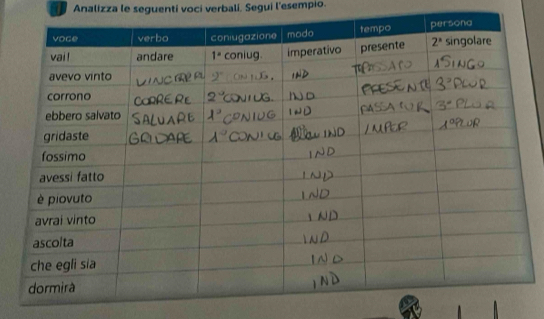 Analizza le seguenti voci verbali. Segui l'esempio.
voce verbo coniugazione modo tempo persona
vai! andare 1ª coniug. imperativo presente 2ª singolare
avevo vinto CONIUG. IND 1ª SINGO
corrono CORRERE 2ª CONIUG. IND PRESENTE 3ª PLUR
ebbero salvato SALVARE 1ª CONIUG IND 3ª PLUR
gridaste GRIDARE 1ª CONIUG IND IMPER 1ª PLUR
fossimo IND
avessi fatto IND
è piovuto IND
avrai vinto IND
ascolta IND
che egli sia IND
dormirà IND